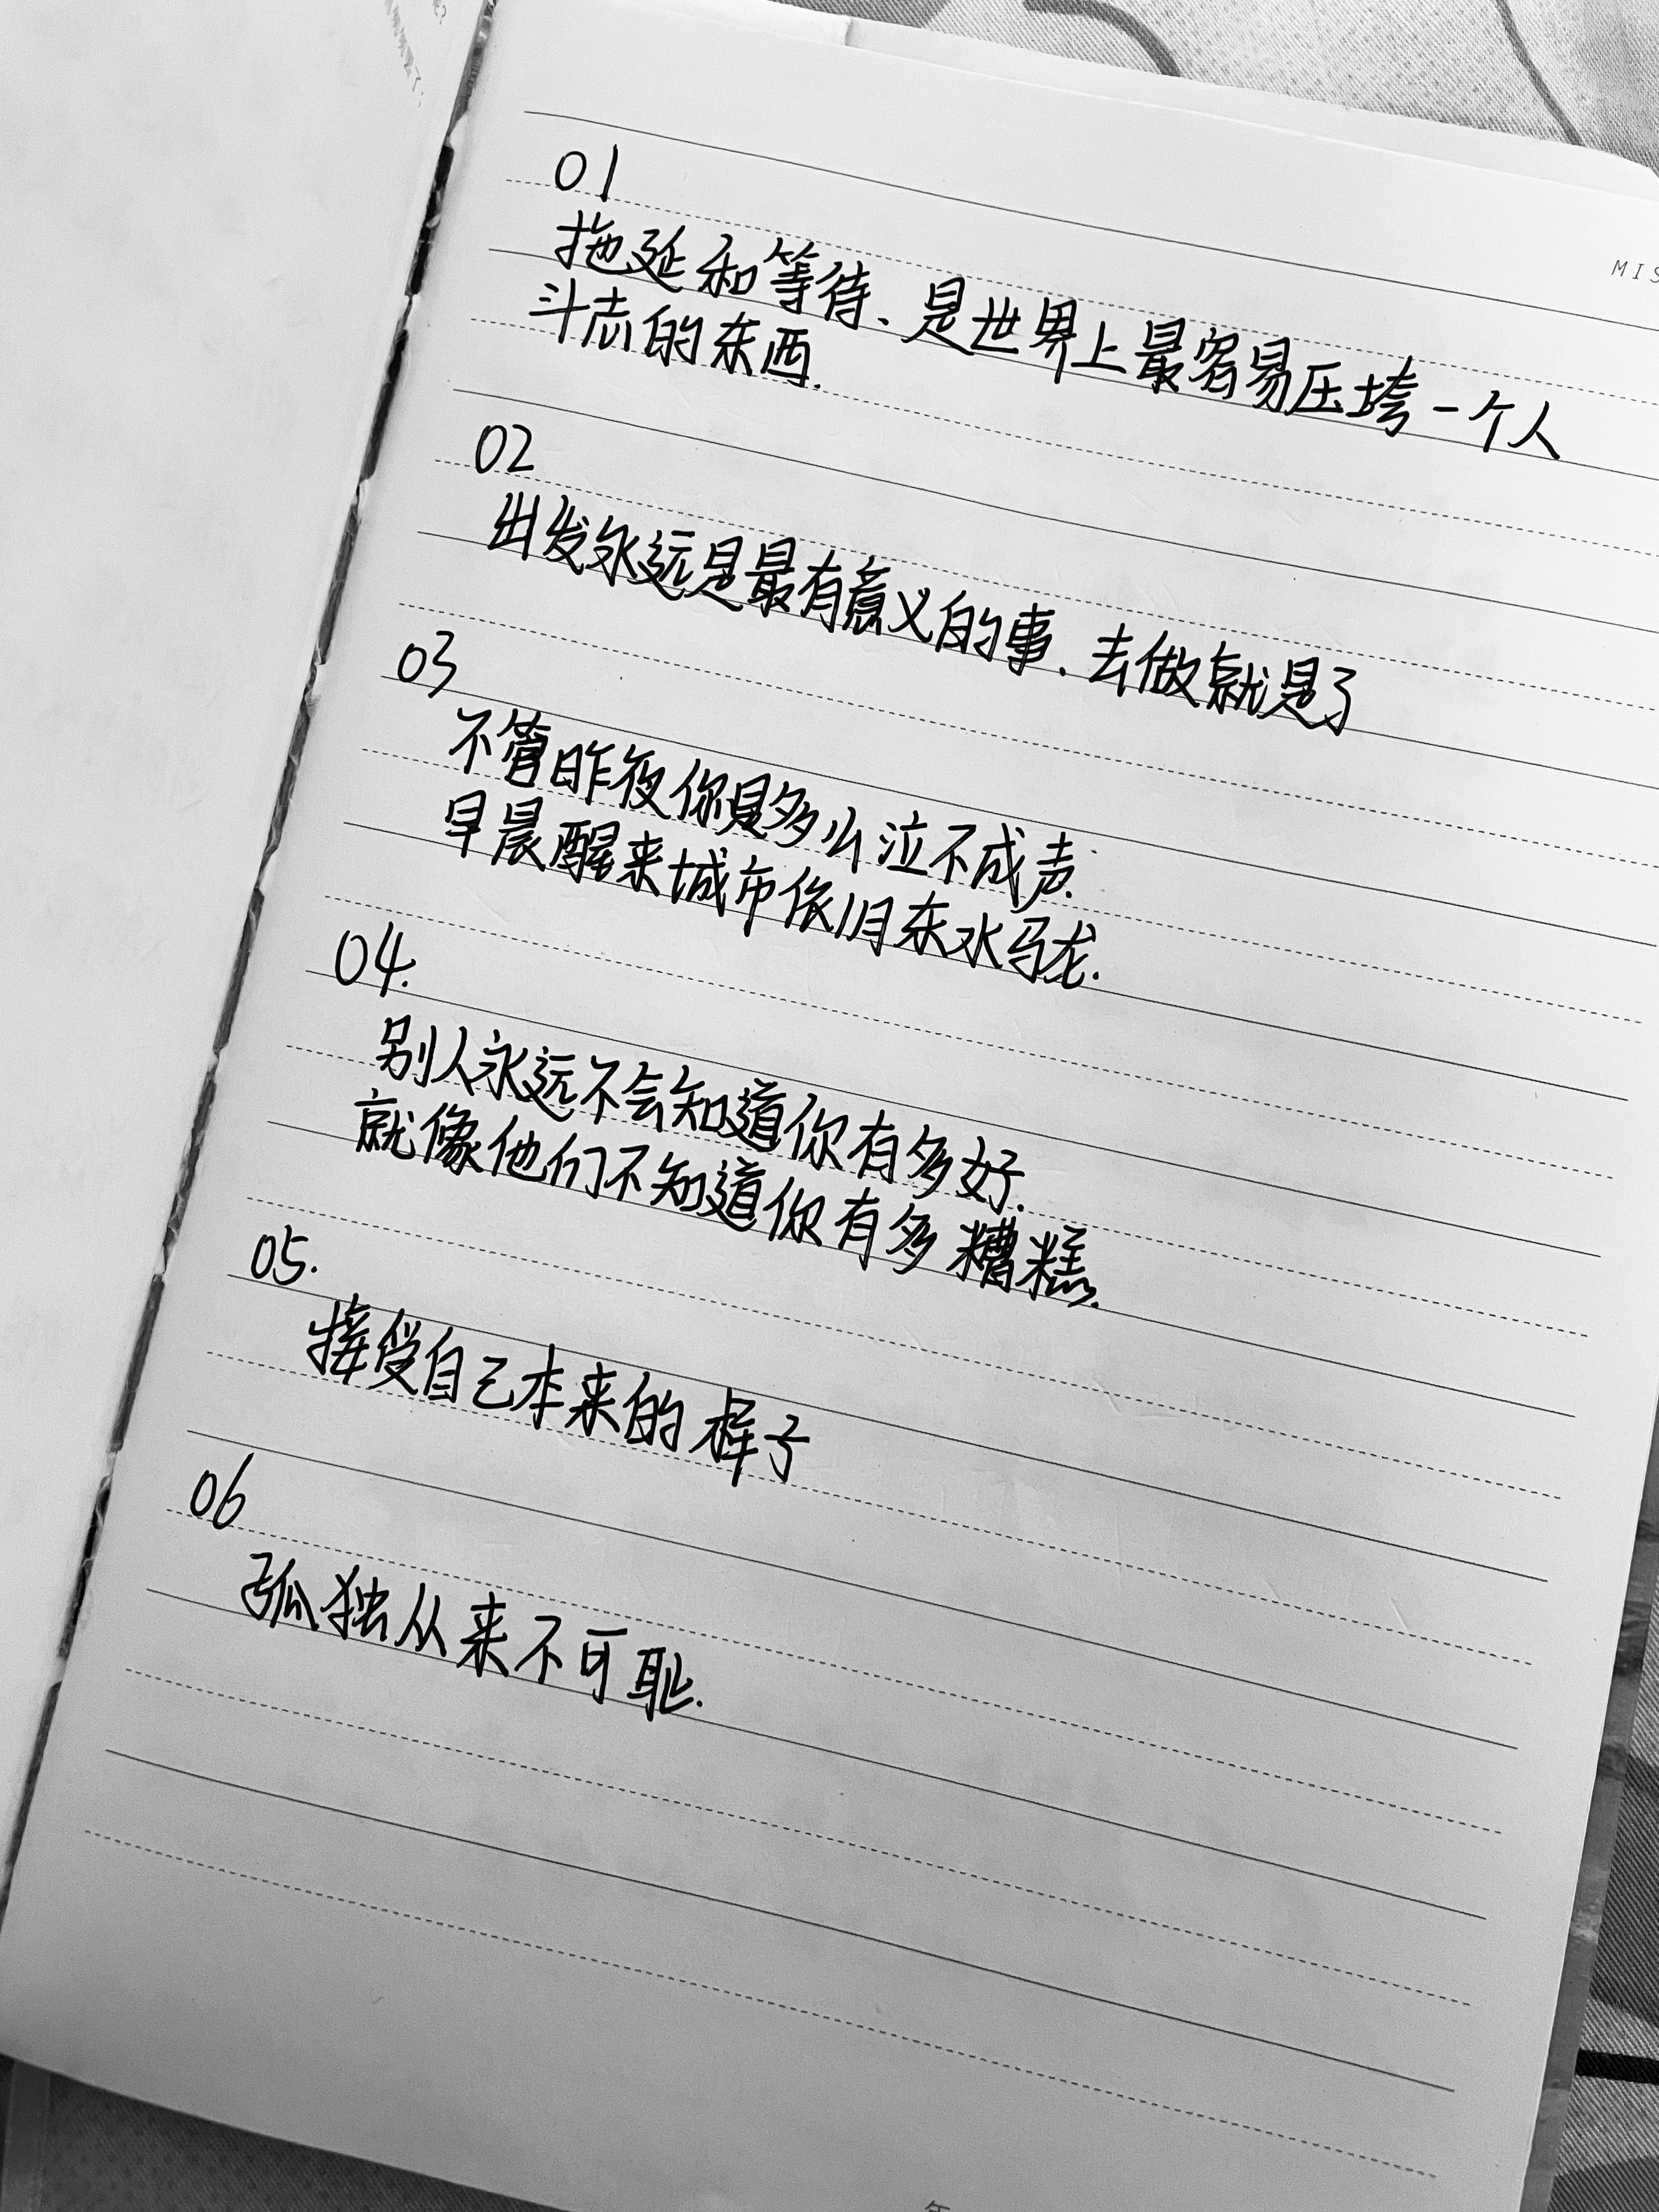 01
拖延和等待、是世界上最容易压垮一个人
斗志的东西.
02
出发永远是最有意义的事、去做就是了
03
不管昨夜你是多么泣不成声.
早晨醒来城市依旧东水马龙.
04.
别人永远不会知道你有多好.
就像他们不知道你有多糟糕.
05.
接受自己本来的样子
06
孤独从来不可耻.
MIS